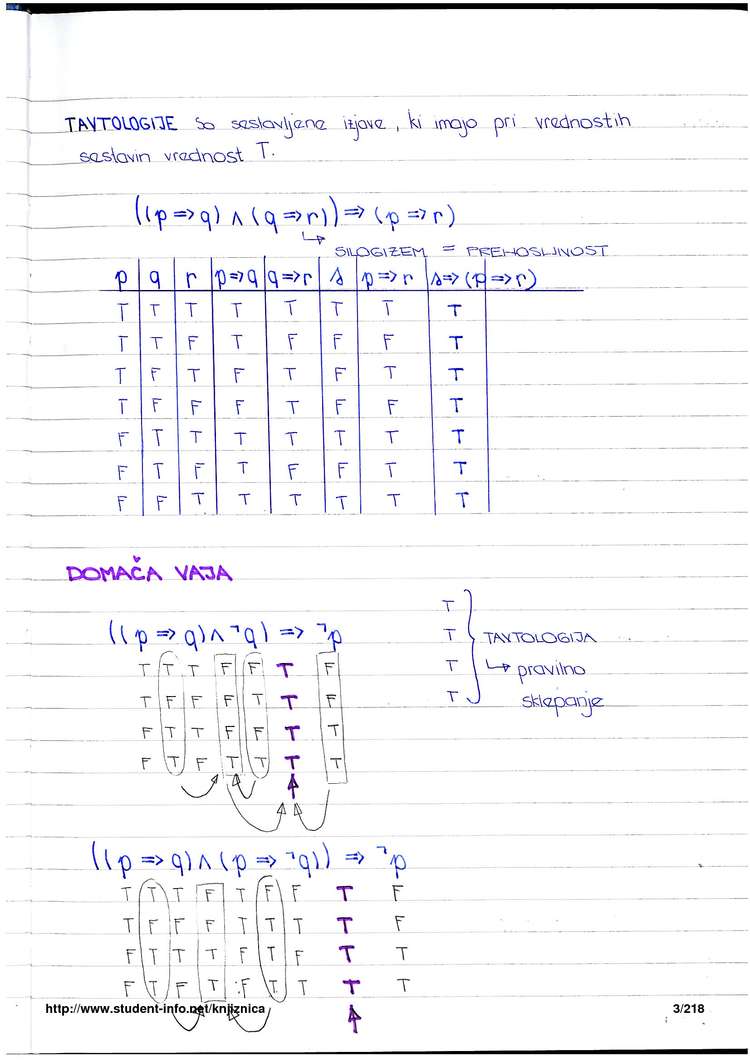 TAVTOLOGIJE so sestavljene izjave, ki imajo pri vrednostih
sestavin vrednost T.
((p => q) ∧ (q => r)) => (p => r)
↳ SILOGIZEM = PREHOSLJIVOST
p q r p=>q q=>r s p=>r s=>(p=>r)
T T T T T T T T
T T F T F F F T
T F T F T F T T
T F F F T F F T
F T T T T T T T
F T F T F F T T
F F T T T T T T
DOMAČA VAJA
((p => q) ∧ ¬q) => ¬p
T T T F F T F
T F F F T T F
F T T F F T T
F T F T T T T
T
T TAVTOLOGIJA
T ↳ pravilno
T sklepanje
((p => q) ∧ (p => ¬q)) => ¬p
T T T F T F F T F
T F F F T T T T F
F T T T F T F T T
F T F T F T T T T
http://www.student-info.net/knjiznica 3/218